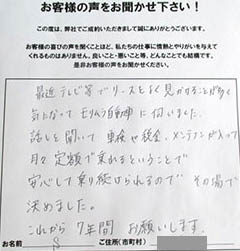 お客様の声をお聞かせ下さい！
この度は、弊社でご成約いただきまして誠にありがとうございます。
お客様の喜びの声を聞くことほど、私たちの仕事に情熱とやりがいを与えて
くれるものはありません。良いこと・悪いこと等、どんなことでも結構です。
是非お客様の声をお聞かせください。
最近テレビ等でリースをよく見かけることが多く
気になって モリムラ自動車に伺いました。
話しを聞いて 車検や税金、メンテナンスが入って
月々定額で乗れるということで
安心して乗り続けられるので その場で
決めました。
これから7年間 お願いします。
お名前
ご住所(市町村)